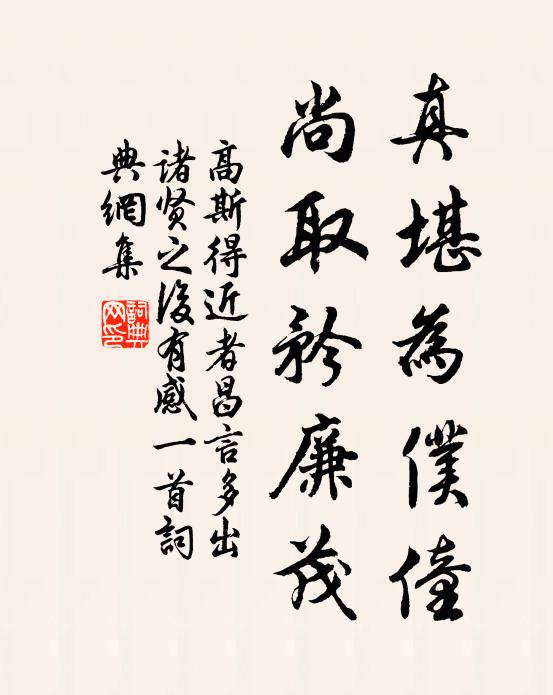 真堪為僕僮
尚取矜廉茂
高斯得近者昌言多出
诸贤之後有感一首詞
典網集
詞典網印